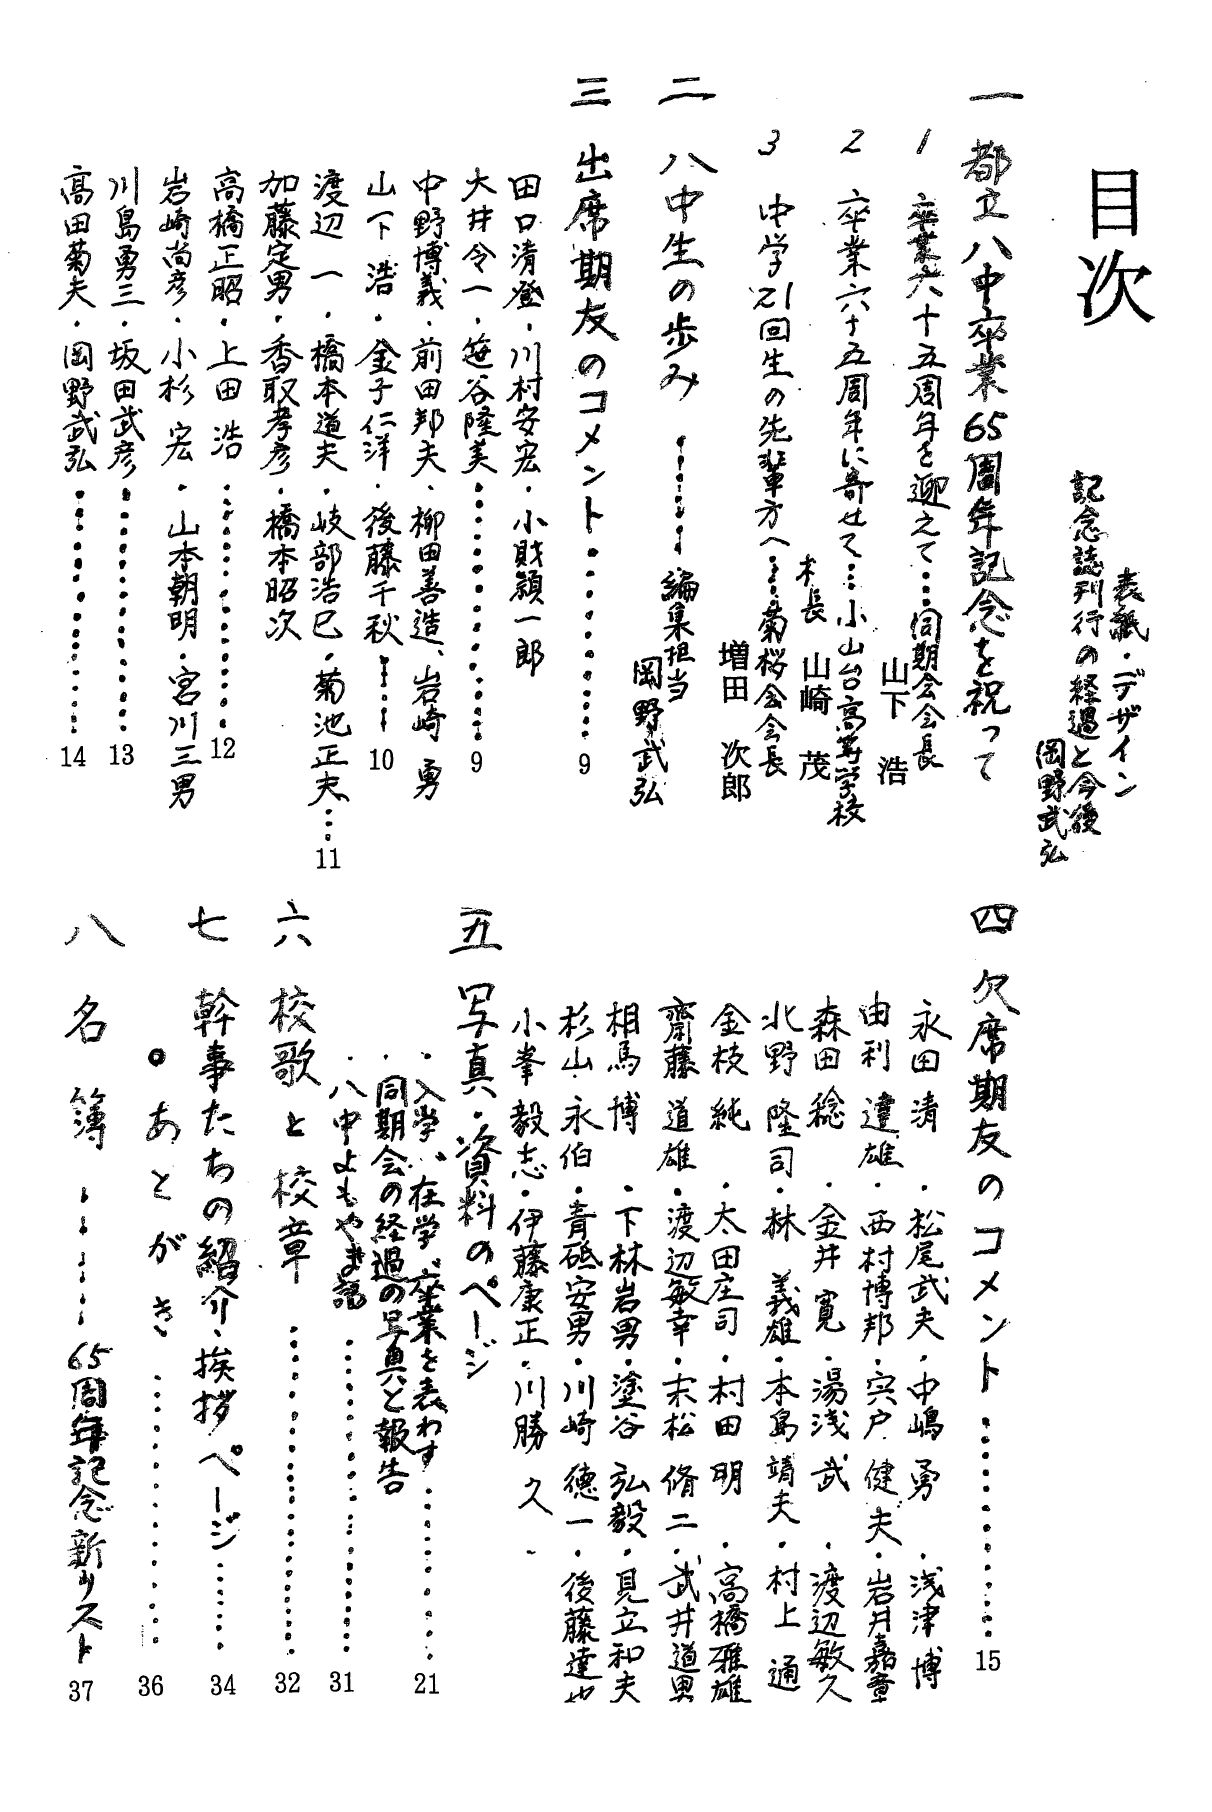 目次
表紙・デザイン
記念誌刊行の経過と今後
岡野武弘
一 都立八中卒業65周年記念を祝って
1 卒業六十五周年を迎えて…同期会会長
山下 浩
2 卒業六十五周年に寄せて…小山台高等学校
校長 山崎 茂
3 中学21回生の先輩方へ…菊桜会会長
増田 次郎
二 八中生の歩み………編集担当
岡野武弘
三 出席期友のコメント…………9
田口清登・川村安宏・小財穎一郎
大井令一・笹谷隆美…………9
中野博義・前田邦夫、柳田善造、岩崎 勇
山下 浩・金子仁洋・後藤千秋……10
渡辺 一・橋本道夫・岐部浩巳・菊池正夫…11
加藤定男・香取孝彦・橋本昭次
高橋正昭・上田 浩…………12
岩崎尚彦・小杉 宏・山本朝明・宮川三男
川島勇三・坂田武彦…………13
高田菊夫・岡野武弘…………14
四 欠席期友のコメント…………15
永田 清・松尾武夫・中嶋 勇・浅津 博
由利 達雄・西村博邦・宍戸 健夫・岩井嘉章
森田 稔・金井 寛・湯浅 武・渡辺敏久
北野 隆司・林 義雄・本島靖夫・村上 通
金枝 純・太田庄司・村田 明・高橋雅雄
齋藤 道雄・渡辺敏幸・末松 脩二・武井道男
相馬 博・下林岩男・塗谷 弘毅・見立和夫
杉山 永伯・青砥安男・川崎 徳一・後藤達也
小峯 毅志・伊藤康正・川勝 久
五 写真・資料のページ
・入学、在学、卒業を表わす…………21
・同期会の経過の写真と報告
・八中よもやま話…………31
六 校歌と校章…………32
七 幹事たちの紹介・挨拶ページ……34
○ あとがき…………36
八 名簿………65周年記念新リスト 37